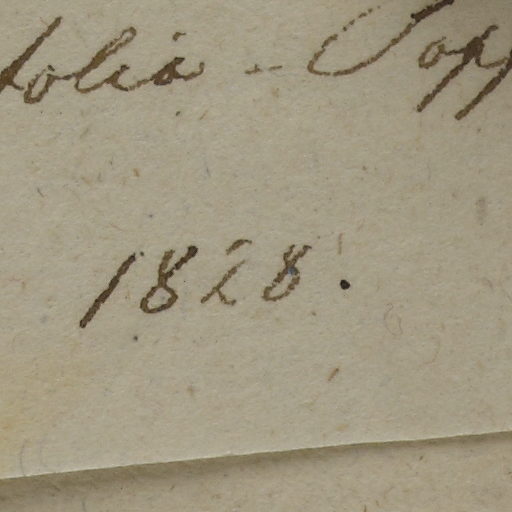 folia - Copp
1828.